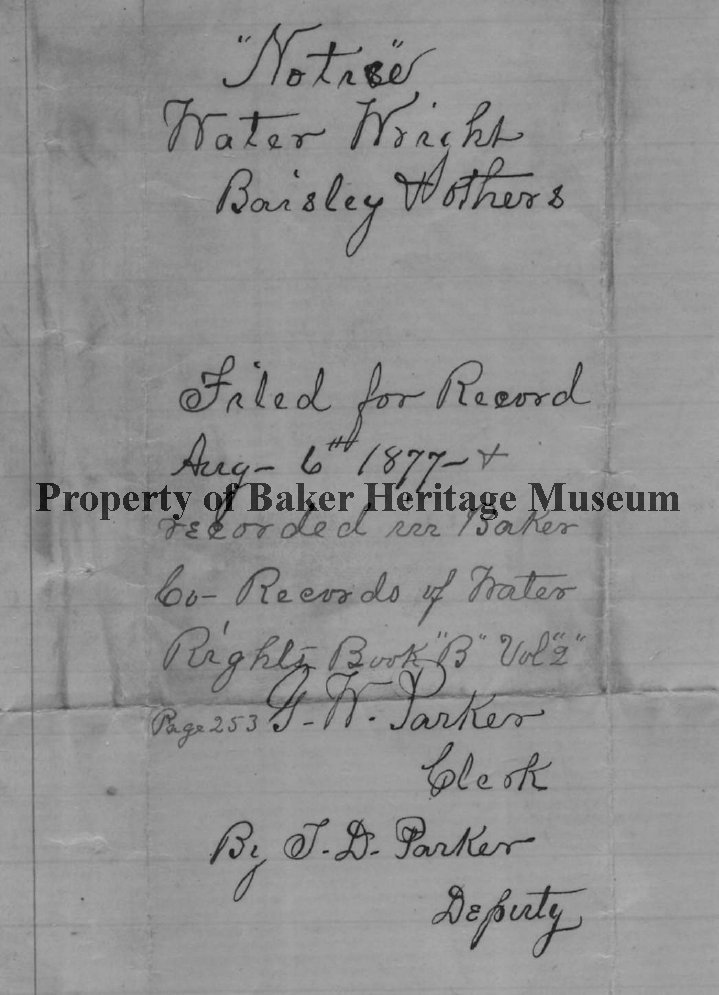 "Notice"
Water Wright
Baisley & others
Filed for Record
Aug - 6th 1877 - &
Property of Baker Heritage Museum
recorded in Baker
Co - Records of Water
Rights Book "B" Vol "2"
Page 253 G. W. Parker
Clerk
By T. D. Parker
Deputy